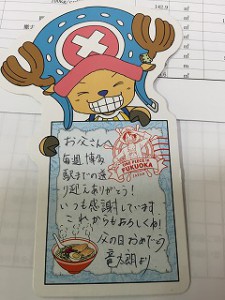 お父さんへ
毎週 博多
駅までの送
り迎えありがとう!
いつも感謝しています
これからもよろしくね!
父の日おめでとう
竜太朗より
ONE PIECE in
FUKUOKA
JAPAN